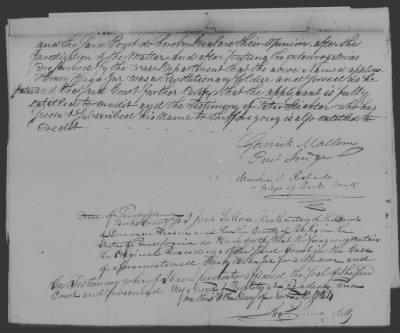 and the said Court do hereby declare their opinion, after the
investigation of the Matter and after putting the interrogatories
prescribed by the War Department that the above named applicant
Henry was a Revolutionary Soldier and Served as he
states and the said Court further Certify that the applicant is fully
entitled to credit and the Testimony of Peter who has
Sworn & Subscribed his Name to the foregoing is also entitled to
Credit.
Garrick Mallery
Prest Judge
Matthias S. Richards
a Judge of Berks County
State of Pennsylvania
Berks County Ss I Prothonotary of the Court
of Common Pleas and for the County of Berks in the
State of Pennsylvania do hereby certify that the foregoing contains
the Original Proceedings of the said Court in the Case
of aforementioned Henry for a Pension and
In Testimony whereof I have hereunto affixed the Seal of the said
Court and subscribed My Name
on this Day of 1834